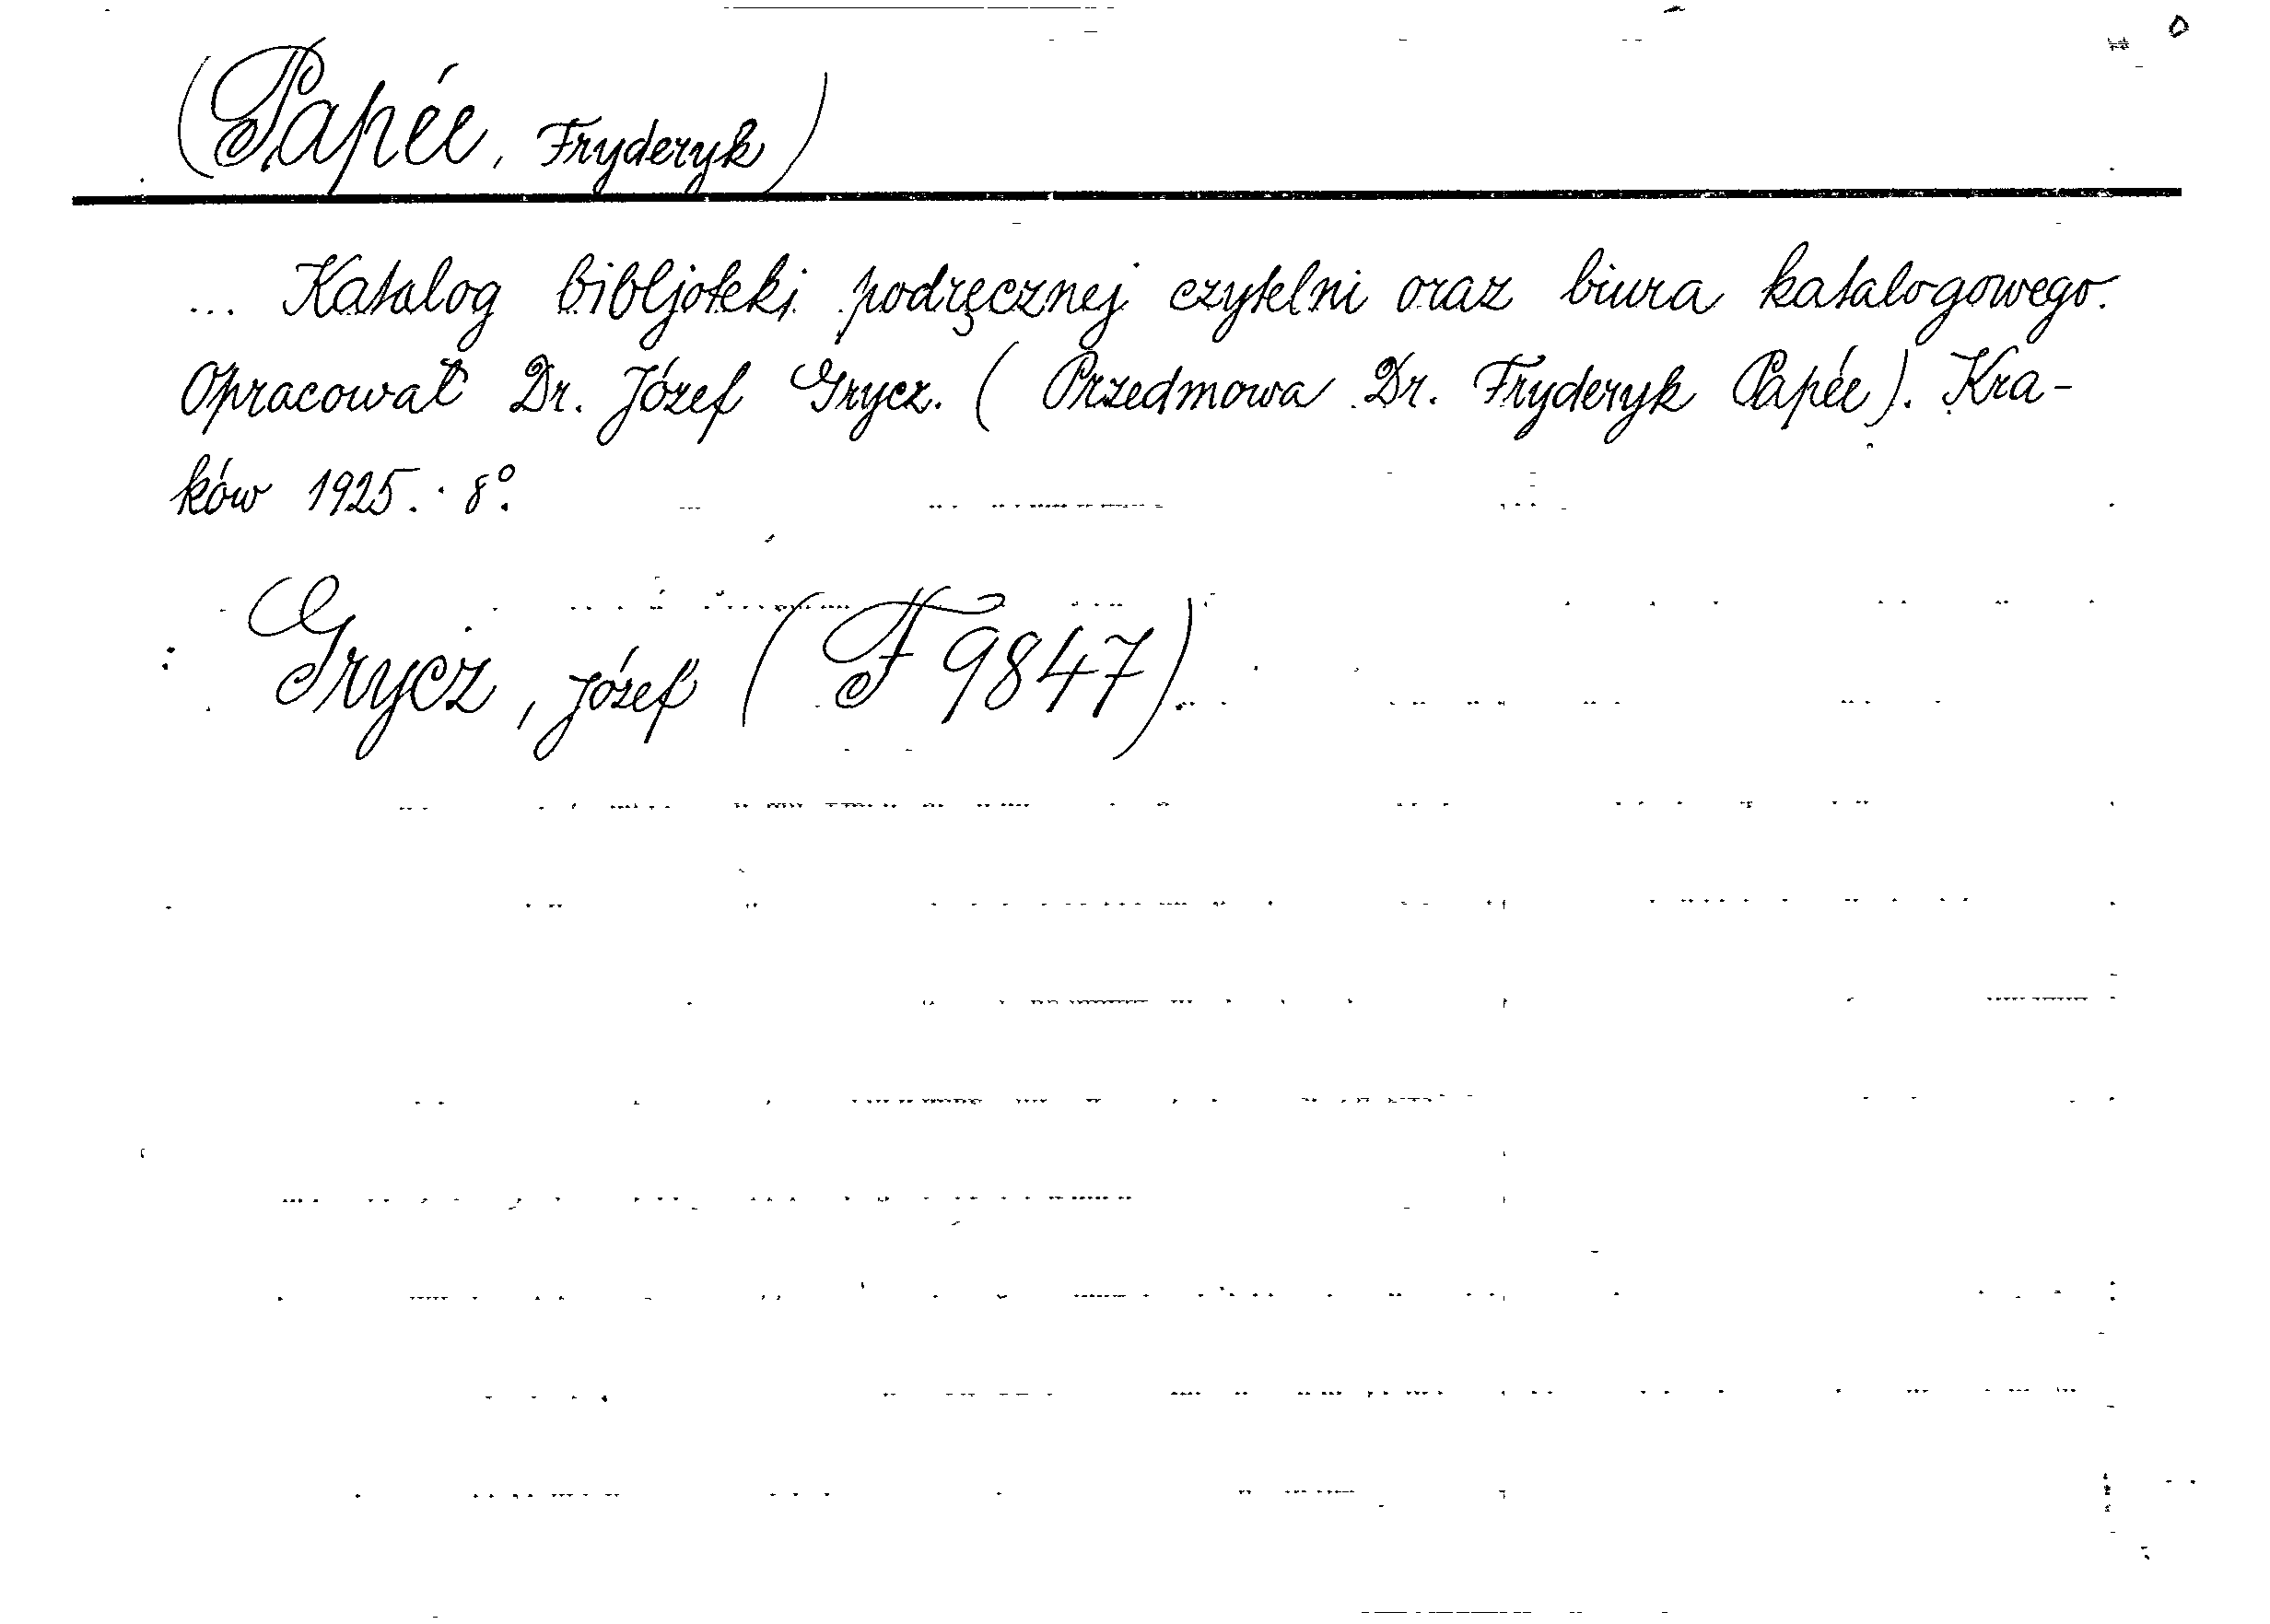 (Papée, Fryderyk)
... Katalog bibljoteki podręcznej czytelni oraz biura katalogowego.
Opracował Dr. Józef Grycz. (Przedmowa Dr. Fryderyk Papée). Kra-
ków 1925. 8°.
Grycz, Józef (F 9847).